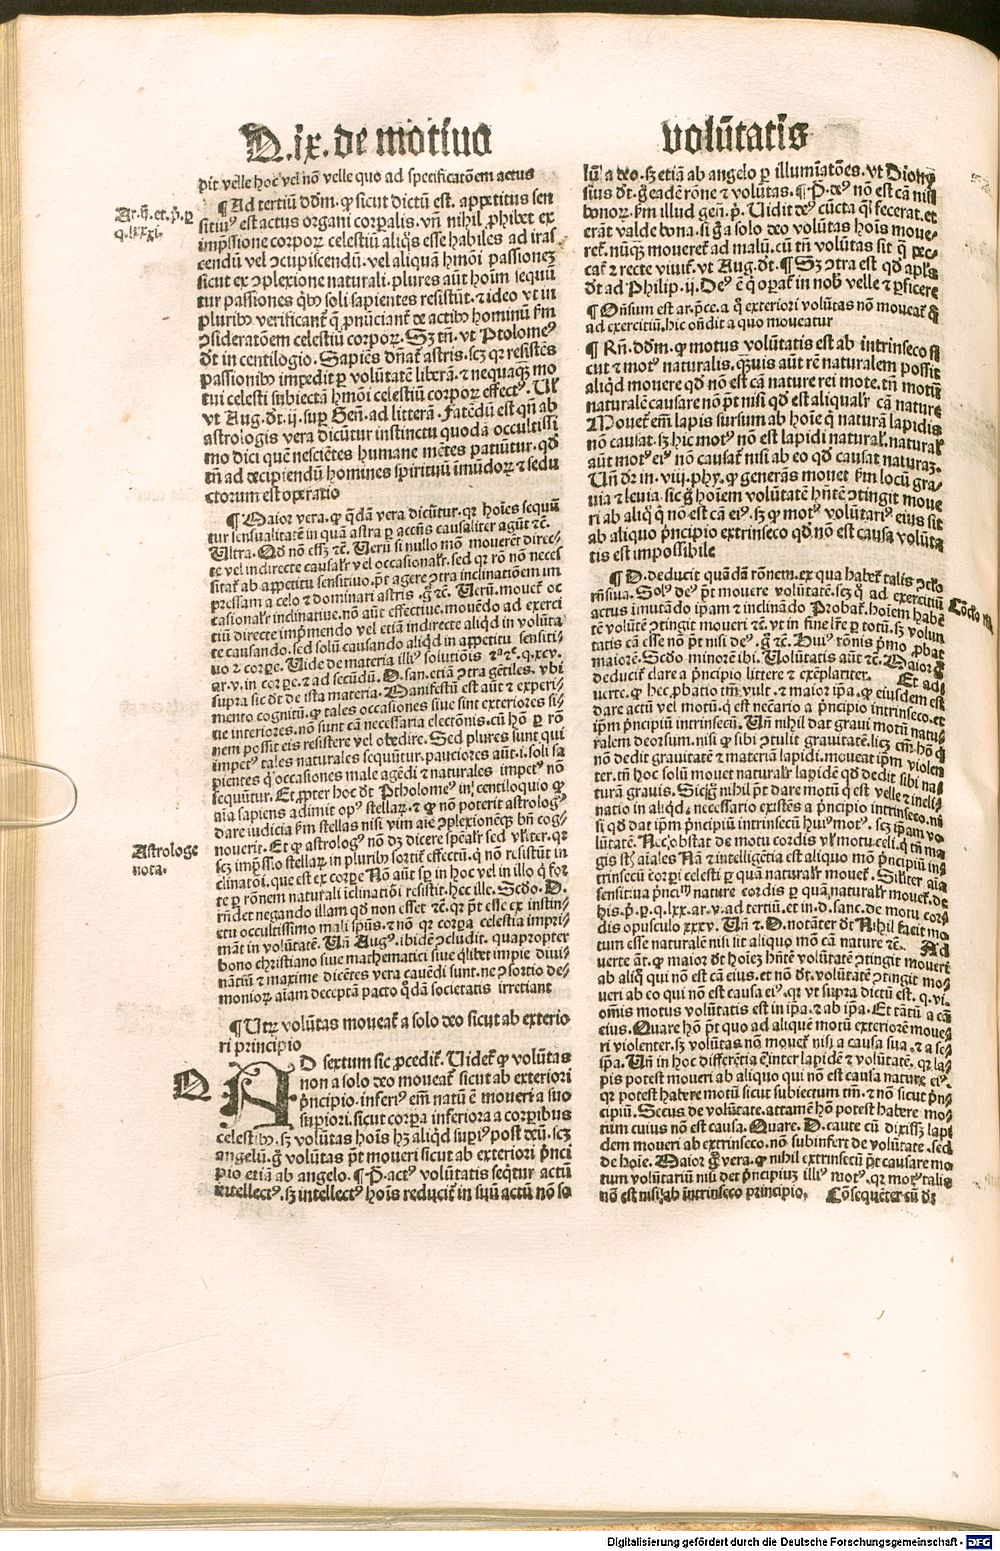 Q.ix.de motiua volūtatis
pit velle hoc vel nō velle quo ad specificatōem actus
¶ Ad tertiū dōm. ꝙ sicut dictū est. appetitus sen
sitiuꝰ est actus organi corꝑalis. vn̄ nihil ꝓhibet ex
imp̄ssione corpoꝝ celestiū aliq̄s esse habiles ad iras
cendū vel ↄcupiscendū. vel aliquā hm̄oi passionez
sicut ex ↄplexione naturali. plures aūt hoīm sequū
tur passiones qͥbꝰ soli sapientes resistūt. ⁊ ideo vt in
pluribꝰ verificant̄ q̄ p̄nūciant̄ de actibꝰ hominū fm̄
ↄsideratōem celestiū corpoꝝ. Sꝫ tn̄. vt Ptolomeꝰ
dt̄ in centilogio. Sapiēs dn̄at̄ astris. scꝫ qꝛ resistēs
passionibꝰ impedit ꝑ volūtatē liberā. ⁊ nequaꝙ̄ mo
tui celesti subiectā hm̄oi celestiū corpoꝝ effectꝰ. Ul̄
vt Aug. dt̄. ij. suꝑ Gen̄. ad litterā. Fatēdū est qn̄ ab
astrologis vera dicūtur instinctu quodā occultissi
mo dici quē nesciētes humane mētes patiūtur. qd̄
tn̄ ad decipiendū homines spirituū īmūdoꝝ ⁊ sedu
ctorum est operatio
¶ Maior vera. ꝙ q̄dā vera dicūtur. qꝛ hoīes sequū
tur sensualitatē in quā astra ꝑ accn̄s causaliter agūt ⁊c̄.
Ultra. Qd̄ nō essꝫ ⁊c̄. Uerū si nullo mō mouerēt direc-
te vel indirecte causalr̄ vel occasionalr̄. sed qꝛ rō nō neces
sitat̄ ab appetitu sensitiuo. p̄t agere ↄtra inclinatiōem im
pressam a celo ⁊ dominari astris. g̊ ⁊c̄. Uerū. mouet̄ oc
casionalr̄ inclinatiue. nō aūt effectiue. mouēdo ad exerci
tiū directe imp̄mendo vel etiā indirecte aliqd̄ in volūta
te causando. sed solū causando aliqd̄ in appetitu sensiti-
uo ⁊ corꝑe. Uide de materia illiꝰ solutiōis q.xcv.
ar.v. in corꝑe. ⁊ ad secūdū. D. san. etiā ↄtra gētiles. vbi
supra sic dt̄ de ista materia. Manifestū est aūt ⁊ experi-
mento cognitū. ꝙ tales occasiones siue sint exteriores si-
ue interiores. nō sunt cā necessaria electōnis. cū hō ꝑ rō
nem possit eis resistere vel obedire. Sed plures sunt qui
impetꝰ tales naturales sequūtur. pauciores aūt. i. soli sa
pientes qͥ occasiones male agēdi ⁊ naturales impetꝰ nō
sequūtur. Et ꝓpter hoc dt̄ Ptholomeꝰ in centiloquio ꝙ
aīa sapiens adimit opꝰ stellaꝝ. ⁊ ꝙ nō poterit astrologꝰ
dare iudicia fm̄ stellas nisi vim aīe ↄplexionēqꝫ bn̄ cog-
nouerit. Et ꝙ astrologꝰ nō dꝫ dicere sp̄ealr̄ sed vl̄iter. qꝛ
scꝫ imp̄ssio stellaꝝ in pluribꝰ sortit̄ effectū. qͥ nō resistūt in
clinatōi. que est ex corꝑe. Nā aūt sꝑ in hoc vel in illo qͥ for
te ꝑ rōnem naturali iclinatiōi resistit. hec ille. Scd̄o. D.
rn̄det negando illam qd̄ non esset ⁊c̄. qꝛ p̄t esse ex instin-
ctu occultissimo mali sp̄us. ⁊ nō qꝛ corꝑa celestia impri-
māt in volūtatē. Un̄ Augꝰ. ibidē ↄcludit. quapropter
bono christiano siue mathematici siue qͥlibet impie diui-
nātiū ⁊ maxime dicētes vera cauēdi sunt. ne ↄsortio de-
monioꝝ aīam deceptā pacto qͦdā societatis irretiant
¶ Utꝝ volūtas moueat̄ a solo deo sicut ab exterio-
ri principio
AD sextum sic ꝓcedit̄. Uidet̄ ꝙ volūtas
non a solo deo moueat̄ sicut ab exteriori
p̄ncipio. inferiꝰ em̄ natū ē moueri a suo
supiori. sicut corꝑa inferiora a corꝑibus
celestibꝰ. sꝫ volūtas hoīs hꝫ aliqd̄ supiꝰ post deū. scꝫ
angelū. g̊ volūtas p̄t moueri sicut ab exteriori p̄nci
pio etiā ab angelo. ¶ P̄. actꝰ volūtatis seqͥtur actū
intellectꝰ. sꝫ intellectꝰ hoīs reducit̄ in suū actū nō so
Ar.q̄.et.p̄.ꝑ
q.lxxxi.
Astrologe
nota.
D
lū a deo. sꝫ etiā ab angelo ꝑ illumīatōes. vt Diony
sius dt̄. g̊ eadē rōne ⁊ volūtas. ¶ P̄. deꝰ nō est cā nisi
bonoꝝ. fm̄ illud gen̄. p̄. Uidit deꝰ cūcta q̄ fecerat. et
erāt valde bona. si g̊ a solo deo volūtas hoīs moue-
ret̄. nūqꝫ moueret̄ ad malū. cū tn̄ volūtas sit q̄ pec-
cat̄ ⁊ recte viuit̄. vt Aug. dt̄. ¶ Sꝫ ↄtra est qd̄ apl̄s
dt̄ ad Philip. ij. Deꝰ ē q̄ oꝑat̄ in nob̄ velle ⁊ ꝑficere
¶ Oñsum est ar.p̄ce. a qͦ exteriori volūtas nō moueat̄ qͦ
ad exercitiū. hic oñdit a quo moueatur
¶ Rn̄. dōm. ꝙ motus volūtatis est ab intrinseco si
cut ⁊ motꝰ naturalis. q̄ꝫuis aūt rē naturalem possit
aliqd̄ mouere qd̄ nō est cā nature rei mote. tn̄ motū
naturalē causare non p̄t nisi qd̄ est aliqualr̄ cā nature
Mouet̄ em̄ lapis sursum ab hoīe qͥ naturā lapidis
nō causat. sꝫ hic motꝰ nō est lapidi natural̄. natural̄
aūt motꝰ eiꝰ nō causat̄ nisi ab eo qd̄ causat naturaꝫ.
Un̄ dr̄ in. viij. phy. ꝙ generās mouet fm̄ locū gra-
uia ⁊ leuia. sic g̊ hoīem volūtatē hn̄tē ↄtingit moue
ri ab aliqͦ qͥ nō est cā eiꝰ. sꝫ ꝙ motꝰ volūtariꝰ eius sit
ab aliquo p̄ncipio extrinseco qd̄ nō est causa volūta
tis est impossibile
¶ D. deducit quādā rōnem. ex qua habet̄ talis ↄclo
rn̄siua. Solꝰ deꝰ p̄t mouere volūtatē. scꝫ qͦ ad exercitiū
actus imutādo ip̄am ⁊ inclinādo Probat̄. hoīem habē
tē volūtē ↄtingit moueri ⁊c̄. vt in fine lr̄e ꝑ totū. sꝫ volun
tatis cā esse nō p̄t nisi deꝰ. g̊ ⁊c̄. Huiꝰ rōnis p̄mo ꝓbat
maiorē. Scd̄o minorē ibi. Uolūtatis aūt ⁊c̄. Maior g̊
deducit̄ clare a p̄ncipio littere ⁊ exēplariter. Et ad
uerte. ꝙ hec ꝓbatio tm̄ vult. ⁊ maior ip̄a. ꝙ eiusdem est
dare actū vel motū. qͥ est necārio a p̄ncipio intrinseco. et
ip̄m p̄ncipiū intrinsecū. Un̄ nihil dat graui motū natu-
ralem deorsum. nisi ꝙ sibi ↄtulit grauitatē. licꝫ em̄ hō qͥ
nō dedit grauitatē ⁊ materiā lapidi. moueat ip̄m violen
ter. tn̄ hoc solū mouet naturalr̄ lapidē qd̄ dedit sibi na-
turā grauis. Sic g̊ nihil p̄t dare motū qͥ est velle ⁊ incli-
natio in aliqd̄ a necessario existēs a p̄ncipio intrinseco. ni
si qd̄ dat ip̄m p̄ncipiū intrinsecū huiꝰ motꝰ. scꝫ ip̄am vo-
lūtatē. Nec obstat de motu cordis vl̄ motu celi. qͥ tn̄ ma
gis st̄ aīales Nā ⁊ intelligētia est aliquo mō p̄ncipiū in-
trinsecū corꝑi celesti ꝑ quā naturalr̄ mouet̄. Siliter aīa
sensitiua p̄ncipiū nature cordis ꝑ quā naturalr̄ mouet̄. de
his. p̄. ꝑ. q. lxx. ar. v. ad tertiū. et in. d. sanc. de motu cor-
dis opusculo xxxv. Un̄ ⁊. D. notāter dt̄ Nihil facit mo
tum esse naturalē nisi sit aliquo mō cā nature ⁊c̄. Ad
uerte āt. ꝙ maior dt̄ hoīeꝫ hn̄tē volūtatē ↄtingit mouert
ab aliqͦ qui nō est cā eius. et nō dt̄. volūtatē ↄtingit mo-
ueri ab eo qui nō est causa eiꝰ. qꝛ vt supra dictū est. q. vi.
om̄is motus volūtatis est in ip̄a. ⁊ ab ip̄a. Et tātū a cā
eius. Quare hō p̄t quo ad aliquē motū exteriorē moue-
ri violenter. sꝫ volūtas nō mouet̄ nisi a causa sua. ⁊ a se-
ip̄a. Un̄ in hoc differētia ē inter lapidē ⁊ volūtatē. qꝛ la-
pis potest moueri ab aliquo qui nō est causa nature eiꝰ.
qꝛ potest habere motū sicut subiectum tm̄. ⁊ nō sicut p̄n-
cipiū. Secus de volūtate. attamē hō potest habere mo-
tum cuius nō est causa. Quare. D. caute cū dixissꝫ lapi
dem moueri ab extrinseco. nō subinfert de volūtate. sed
de hoīe. Maior g̊ vera. ꝙ nihil extrinsecū p̄t causare mo
tum volūtariū nisi det p̄ncipiuꝫ illiꝰ motꝰ. qꝛ motꝰ talis
nō est nisi ab intrinseco principio, Cōsequēter cū dꝛ
Cōclo rn̄
Digitalisierung gefördert durch die Deutsche Forschungsgemeinschaft - DFG